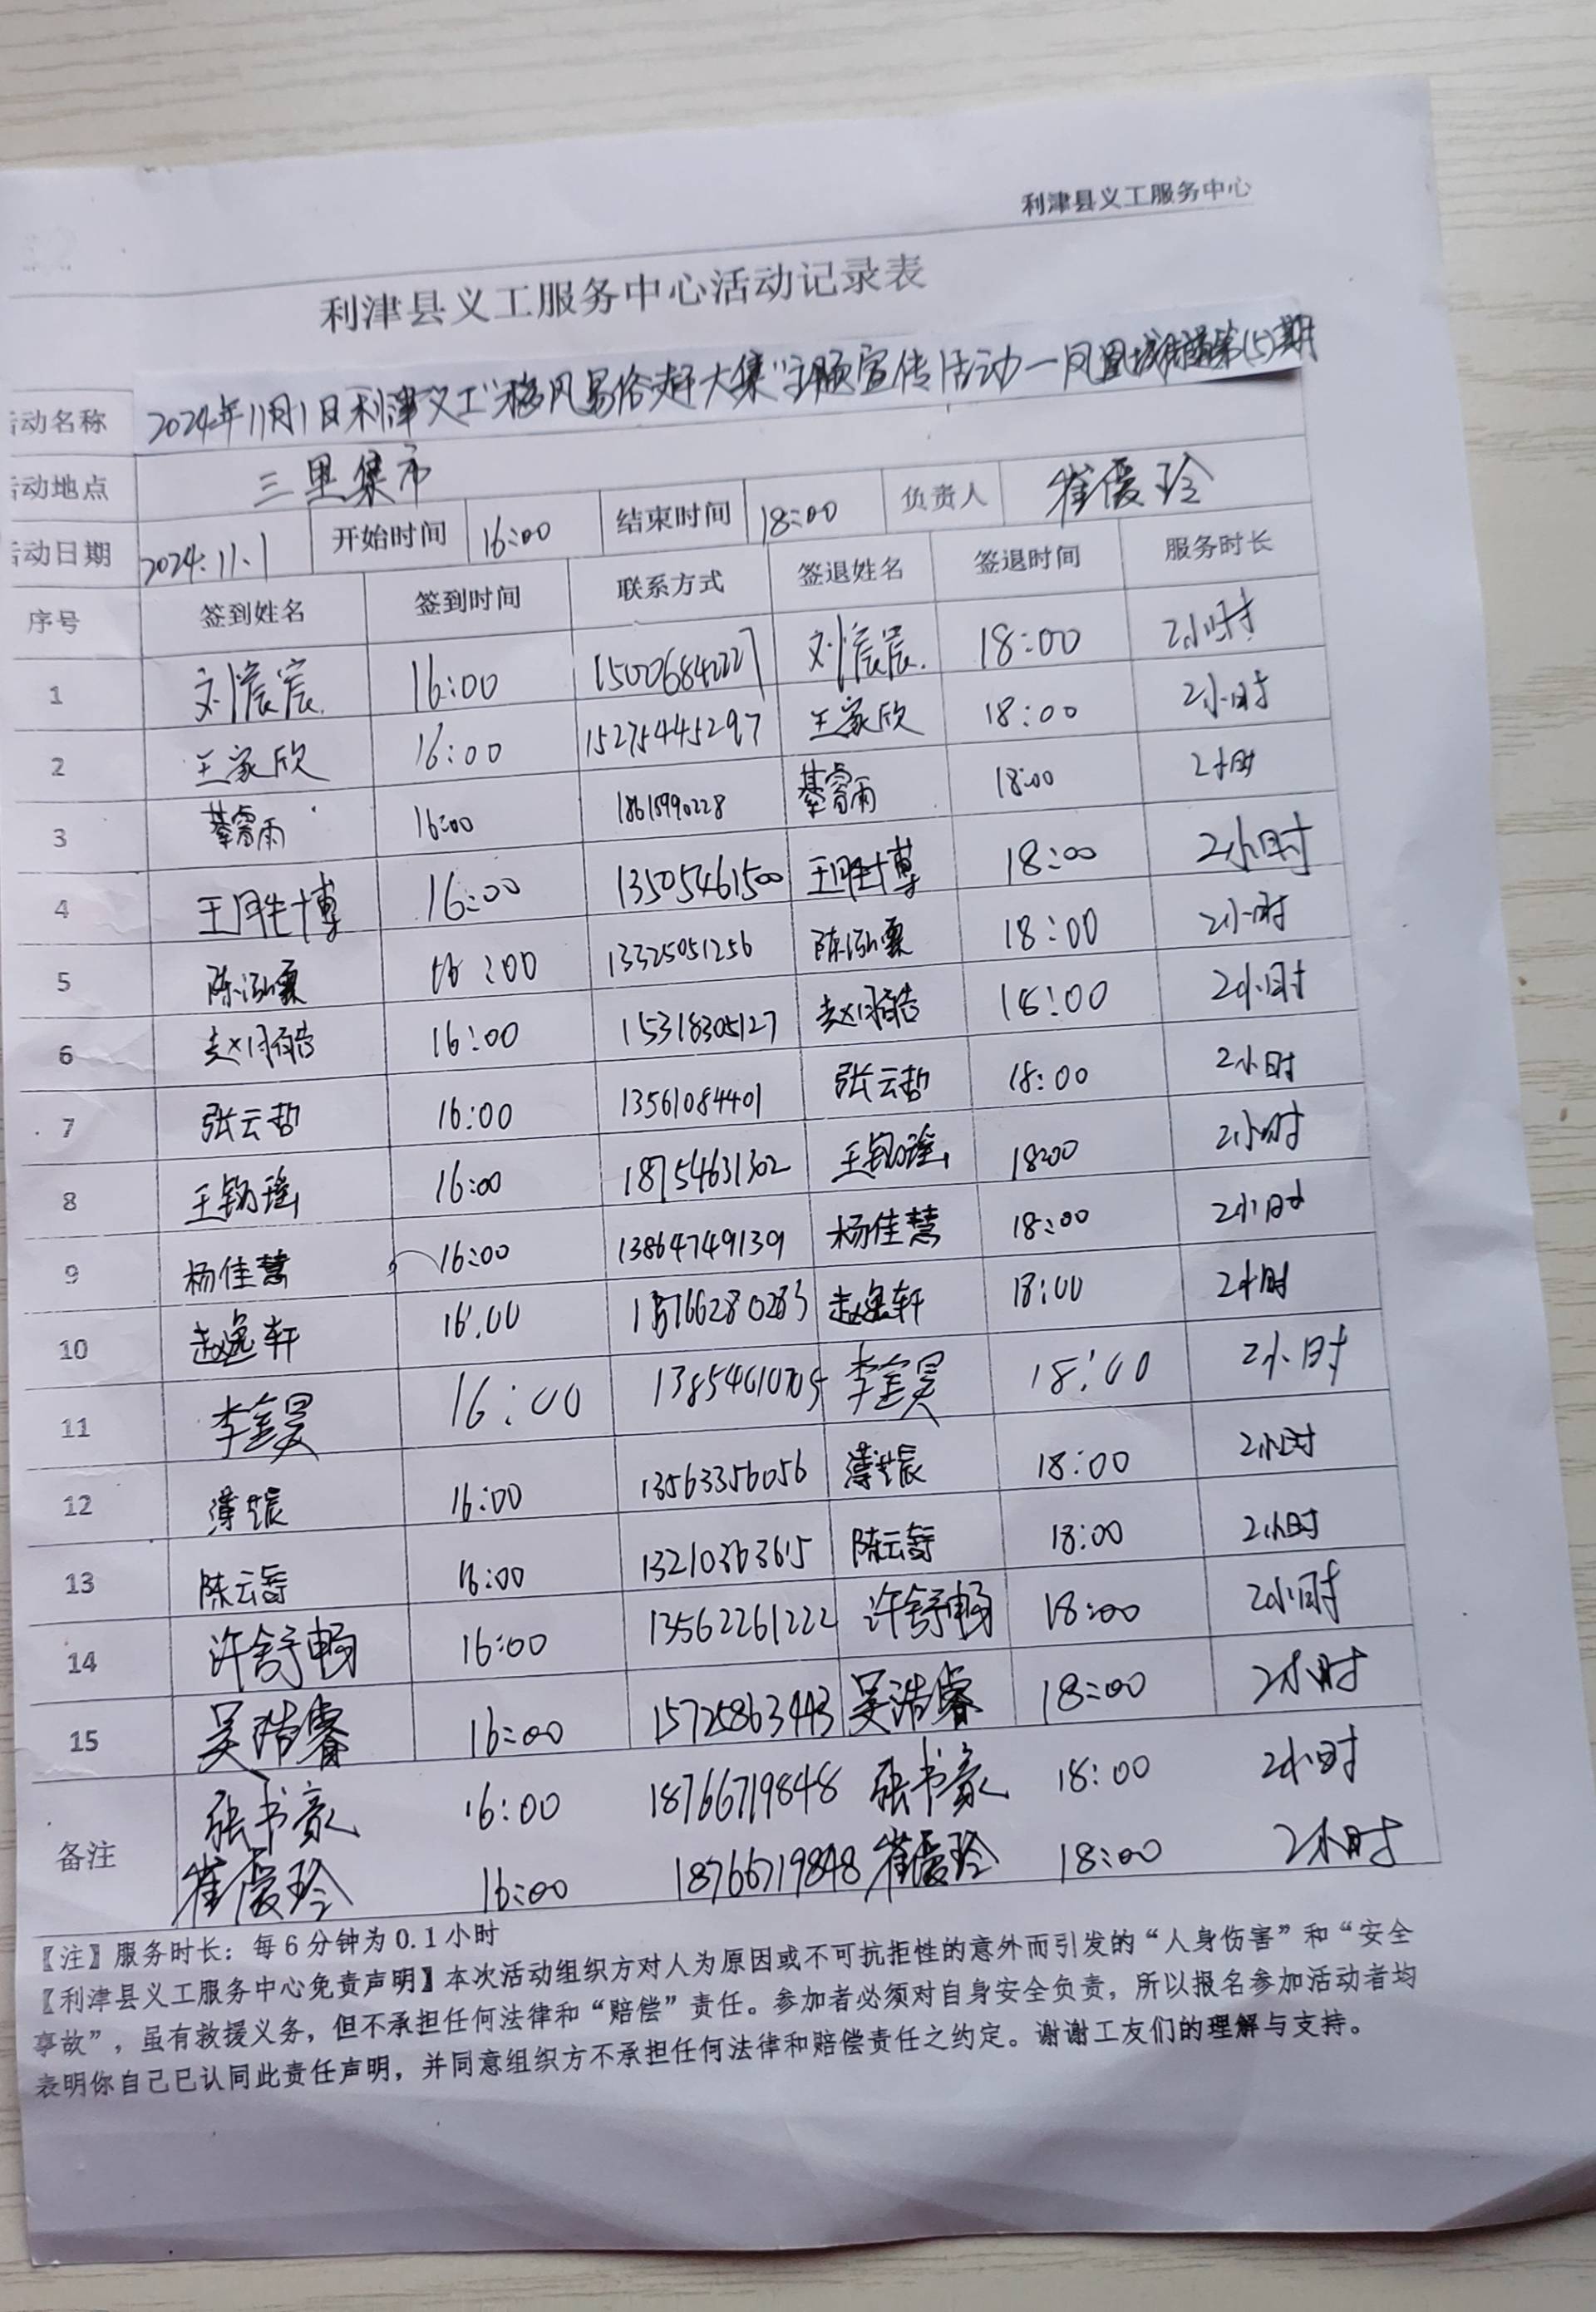 利津县义工服务中心
利津县义工服务中心活动记录表
活动名称 2024年11月1日利津义工"移风易俗赶大集"主题宣传活动—凤凰城街道第(5)期
活动地点 三里集市
活动日期 2024.11.1 开始时间 16:00 结束时间 18:00 负责人 崔霞玲
序号 签到姓名 签到时间 联系方式 签退姓名 签退时间 服务时长
1 刘宸宸 16:00 15006842227 刘宸宸 18:00 2小时
2 王家欣 16:00 15275445297 王家欣 18:00 2小时
3 綦睿雨 16:00 18615990228 綦睿雨 18:00 2小时
4 王胜博 16:00 13505461500 王胜博 18:00 2小时
5 陈泓霖 16:00 13325051256 陈泓霖 18:00 2小时
6 赵 16:00 15318305127 赵 18:00 2小时
7 张云哲 16:00 13561084401 张云哲 18:00 2小时
8 王 瑶 16:00 18754631302 王 瑶 18:00 2小时
9 杨佳慧 16:00 13864749139 杨佳慧 18:00 2小时
10 赵逸轩 16:00 15766280283 赵逸轩 18:00 2小时
11 李 昊 16:00 13854610705 李 昊 18:00 2小时
12 薄 16:00 13563356056 薄 18:00 2小时
13 陈云 16:00 13210363615 陈云 18:00 2小时
14 许舒畅 16:00 13562261222 许舒畅 18:00 2小时
15 吴浩睿 16:00 15725863443 吴浩睿 18:00 2小时
备注 张书豪 16:00 18766719848 张书豪 18:00 2小时
崔霞玲 16:00 18766719848 崔霞玲 18:00 2小时
〖注〗服务时长：每6分钟为0.1小时
〖利津县义工服务中心免责声明〗本次活动组织方对人为原因或不可抗拒性的意外而引发的“人身伤害”和“安全
事故”，虽有救援义务，但不承担任何法律和“赔偿”责任。参加者必须对自身安全负责，所以报名参加活动者均
表明你自己已认同此责任声明，并同意组织方不承担任何法律和赔偿责任之约定。谢谢工友们的理解与支持。